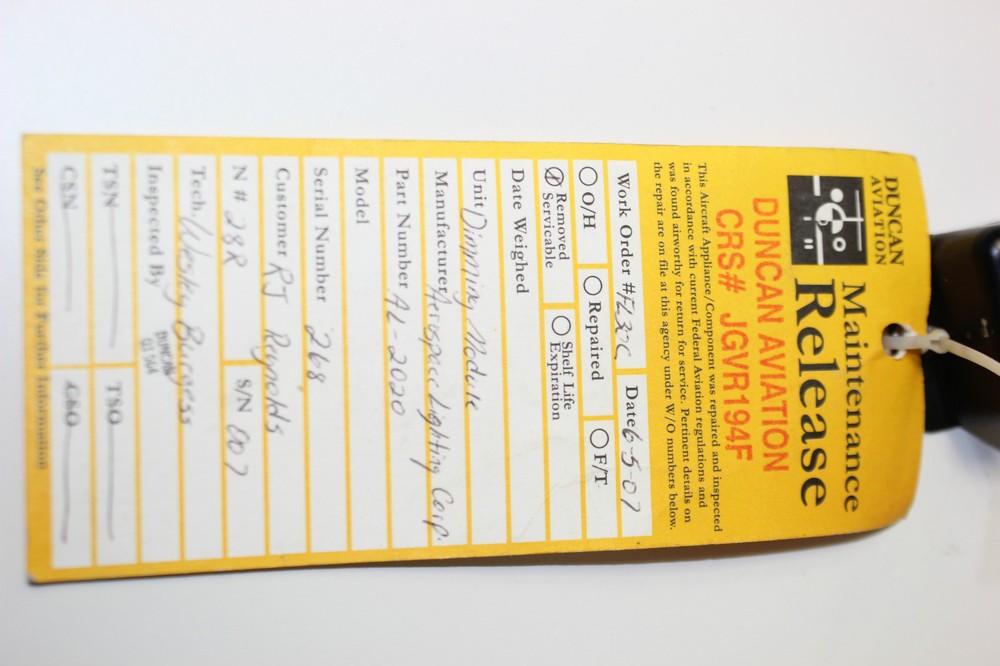 DUNCAN
AVIATION
Maintenance
Release
DUNCAN AVIATION
CRS# JGVR194F
This Aircraft Appliance/Component was repaired and inspected
in accordance with current Federal Aviation regulations and
was found airworthy for return for service. Pertinent details on
the repair are on file at this agency under W/O numbers below.
Work Order # FL30C Date 6-5-07
O/H Repaired F/T
Removed Serviceable Shelf Life Expiration
Date Weighed
Unit Dimming Module
Manufacturer Aerospace Lighting Corp.
Part Number AL-2020
Model
Serial Number 268
Customer RJ Reynolds
N # 28R S/N 007
Tech Wesky Burgess
Inspected By DUNCAN
TSN TSO
CSN CSO
See Other Side for Further Information